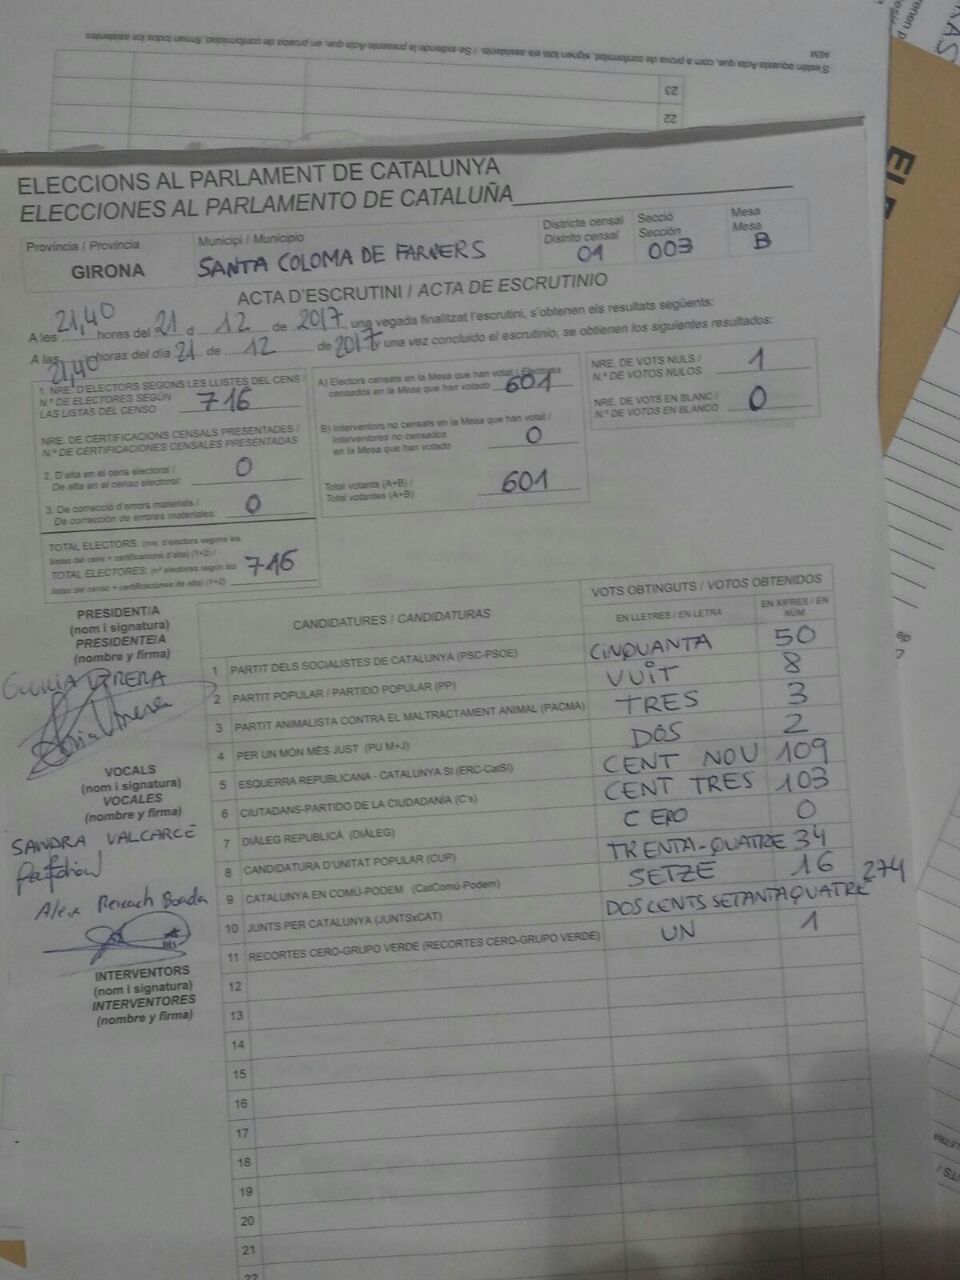 S'estén aquesta Acta que, com a prova de conformitat, signen tots els assistents. / Se extiende la presente Acta que, en prueba de conformidad, firman todos los asistentes.
23
22
ELECCIONS AL PARLAMENT DE CATALUNYA
ELECCIONES AL PARLAMENTO DE CATALUÑA
Província / Provincia
GIRONA
Municipi / Municipio
SANTA COLOMA DE FARNERS
Districte censal
Distrito censal
01
Secció
Sección
003
Mesa
Mesa
B
ACTA D'ESCRUTINI / ACTA DE ESCRUTINIO
A les 21,40 hores del 21 d 12 de 2017, una vegada finalitzat l'escrutini, s'obtenen els resultats següents:
A las 21,40 horas del día 21 de 12 de 2017 y una vez concluido el escrutinio, se obtienen los siguientes resultados:
1. NRE. D'ELECTORS SEGONS LES LLISTES DEL CENS /
N.º DE ELECTORES SEGÚN
LAS LISTAS DEL CENSO 716
NRE. DE CERTIFICACIONS CENSALS PRESENTADES /
N.º DE CERTIFICACIONES CENSALES PRESENTADAS
2. D'alta en el cens electoral /
De alta en el censo electoral: 0
3. De correcció d'errors materials /
De corrección de errores materiales: 0
TOTAL ELECTORS: (nre. d'electors segons les
llistes del cens + certificacions d'alta) (1+2) /
TOTAL ELECTORES: (nº electores según las
listas del censo + certificaciones de alta) (1+2) 716
A) Electors censats en la Mesa que han votat / Electores
censados en la Mesa que han votado 601
B) Interventors no censats en la Mesa que han votat /
Interventores no censados
en la Mesa que han votado 0
Total votants (A+B) /
Total votantes (A+B) 601
NRE. DE VOTS NULS /
N.º DE VOTOS NULOS 1
NRE. DE VOTS EN BLANC /
N.º DE VOTOS EN BLANCO 0
PRESIDENT/A
(nom i signatura)
PRESIDENTE/A
(nombre y firma)
VOCALS
(nom i signatura)
VOCALES
(nombre y firma)
SANDRA VALCARCE
Alex Reixach Boada
INTERVENTORS
(nom i signatura)
INTERVENTORES
(nombre y firma)
CANDIDATURES / CANDIDATURAS
VOTS OBTINGUTS / VOTOS OBTENIDOS
EN LLETRES / EN LETRA
EN XIFRES / EN NÚM.
1 PARTIT DELS SOCIALISTES DE CATALUNYA (PSC-PSOE) CINQUANTA 50
2 PARTIT POPULAR / PARTIDO POPULAR (PP) VUIT 8
3 PARTIT ANIMALISTA CONTRA EL MALTRACTAMENT ANIMAL (PACMA) TRES 3
4 PER UN MÓN MÉS JUST (PU M+J) DOS 2
5 ESQUERRA REPUBLICANA - CATALUNYA SÍ (ERC-CatSí) CENT NOU 109
6 CIUTADANS-PARTIDO DE LA CIUDADANÍA (C's) CENT TRES 103
7 DIÀLEG REPUBLICÀ (DIÀLEG) CERO 0
8 CANDIDATURA D'UNITAT POPULAR (CUP) TRENTA-QUATRE 34
9 CATALUNYA EN COMÚ-PODEM (CatComú-Podem) SETZE 16
10 JUNTS PER CATALUNYA (JUNTSxCAT) DOSCENTS SETANTAQUATRE 274
11 RECORTES CERO-GRUPO VERDE (RECORTES CERO-GRUPO VERDE) UN 1
12
13
14
15
16
17
18
19
20
21
22